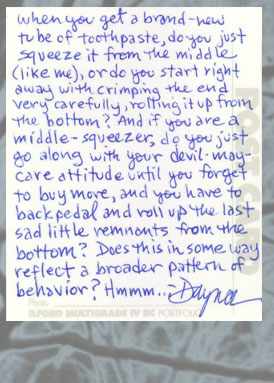 when you get a brand-new
tube of toothpaste, do you just
squeeze it from the middle
(like me), or do you start right
away with crimping the end
very carefully, rolling it up from
the bottom? And if you are a
middle-squeezer, do you just
go along with your devil-may-
care attitude until you forget
to buy more, and you have to
backpedal and roll up the last
sad little remnants from the
bottom? Does this in some way
reflect a broader pattern of
behavior? Hmmm...-Dayna
Photo
ILFORD MULTIGRADE IV RC PORTFOLIO
POST CARD